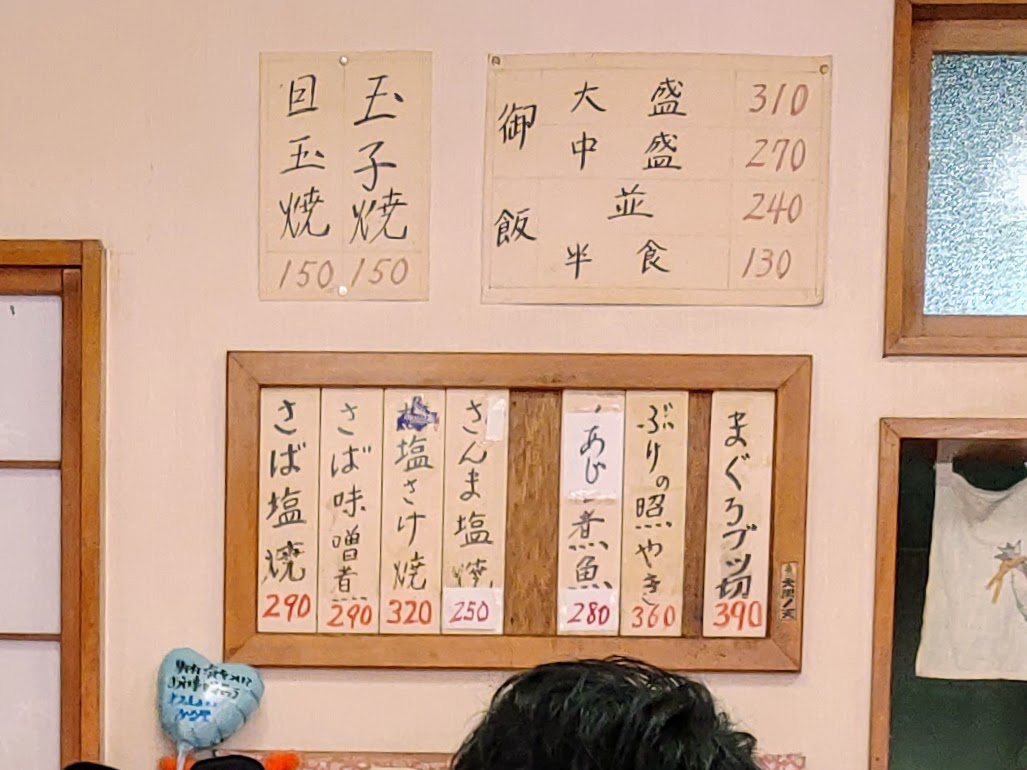 玉子焼 150
目玉焼 150
御飯
大盛 310
中盛 270
並 240
半食 130
まぐろブツ切 390
ぶりの照やき 360
あじ煮魚 280
さんま塩焼 250
塩さけ焼 320
さば味噌煮 290
さば塩焼 290